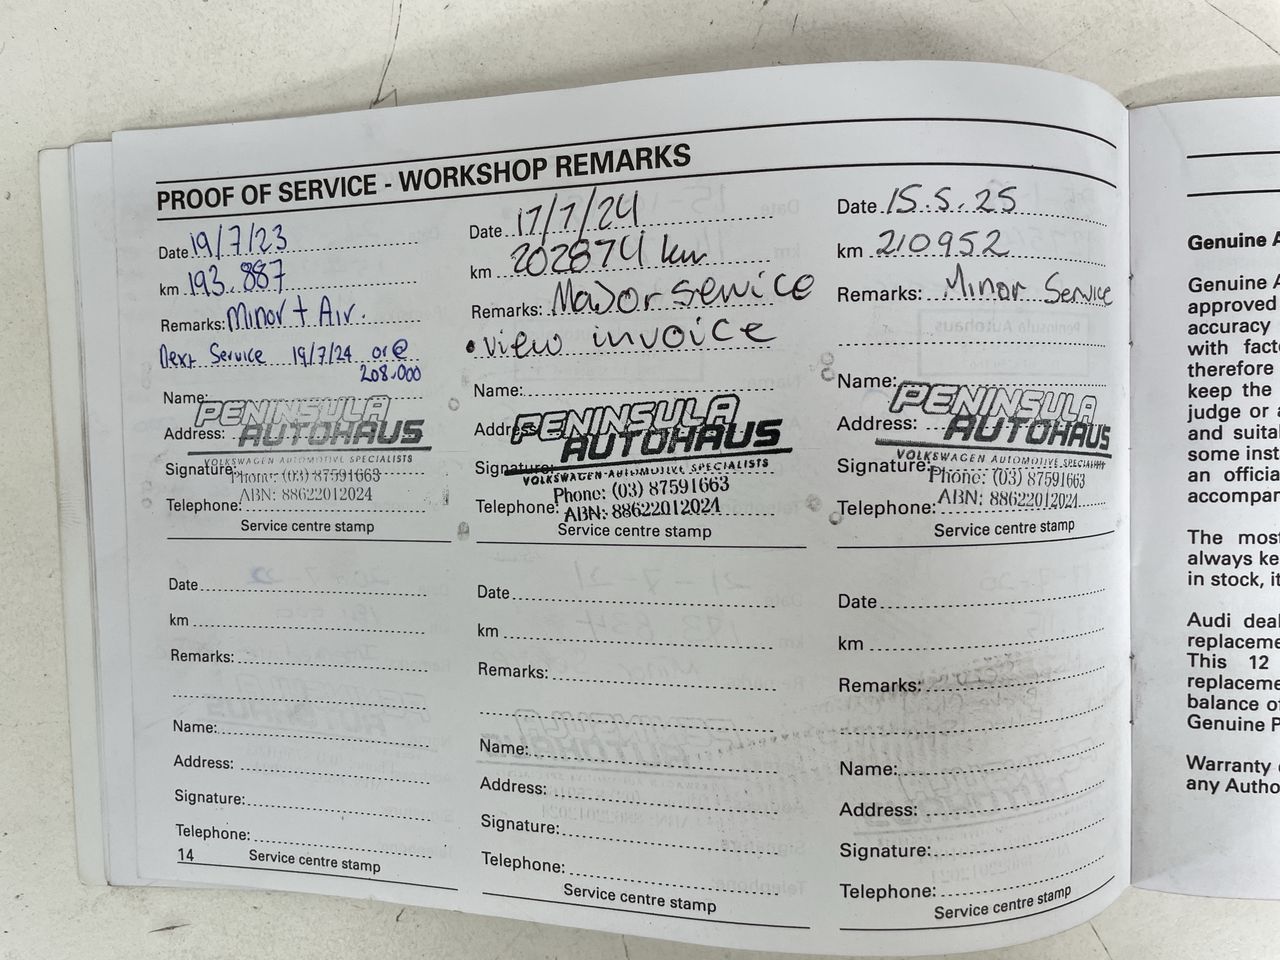 PROOF OF SERVICE - WORKSHOP REMARKS
Date 19/7/23
km 193.887
Remarks: Minor + Air.
Next Service 19/7/24 or @
208.000
Name:
Address:
PENINSULA
AUTOHAUS
VOLKSWAGEN AUTOMOTIVE SPECIALISTS
Signature:
Phone: (03) 87591663
ABN: 88622012024
Telephone:
Service centre stamp
Date 17/7/24
km 202874 km
Remarks: Major service
• view invoice
Name:
Address:
PENINSULA
AUTOHAUS
VOLKSWAGEN AUTOMOTIVE SPECIALISTS
Signature:
Phone: (03) 87591663
ABN: 88622012024
Telephone:
Service centre stamp
Date 15.5.25
km 210952
Remarks: Minor Service
Name:
Address:
PENINSULA
AUTOHAUS
VOLKSWAGEN AUTOMOTIVE SPECIALISTS
Signature:
Phone: (03) 87591663
ABN: 88622012024
Telephone:
Service centre stamp
Date
km
Remarks:
Name:
Address:
Signature:
Telephone:
Service centre stamp
14
Date
km
Remarks:
Name:
Address:
Signature:
Telephone:
Service centre stamp
Date
km
Remarks:
Name:
Address:
Signature:
Telephone:
Service centre stamp
Genuine A
Genuine A
approved
accuracy
with facto
therefore
keep the
judge or a
and suital
some inst
an officia
accompan
The most
always ke
in stock, it
Audi deal
replaceme
This 12
replaceme
balance of
Genuine P
Warranty
any Autho